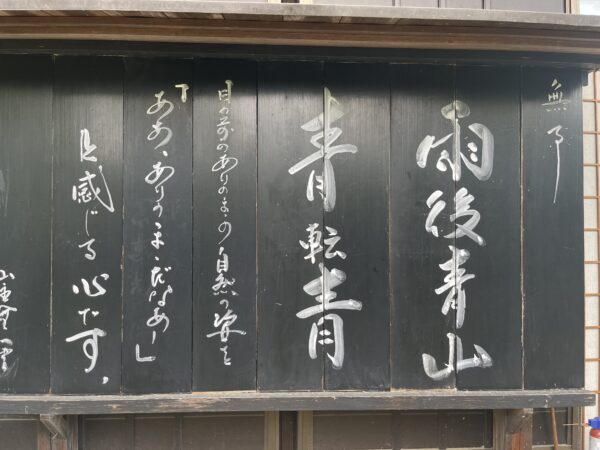 無事
雨後青山
青転青
目の前のありのまゝの自然の姿を
「あゝ、ありのまゝだなあー」
と感じる心だす。